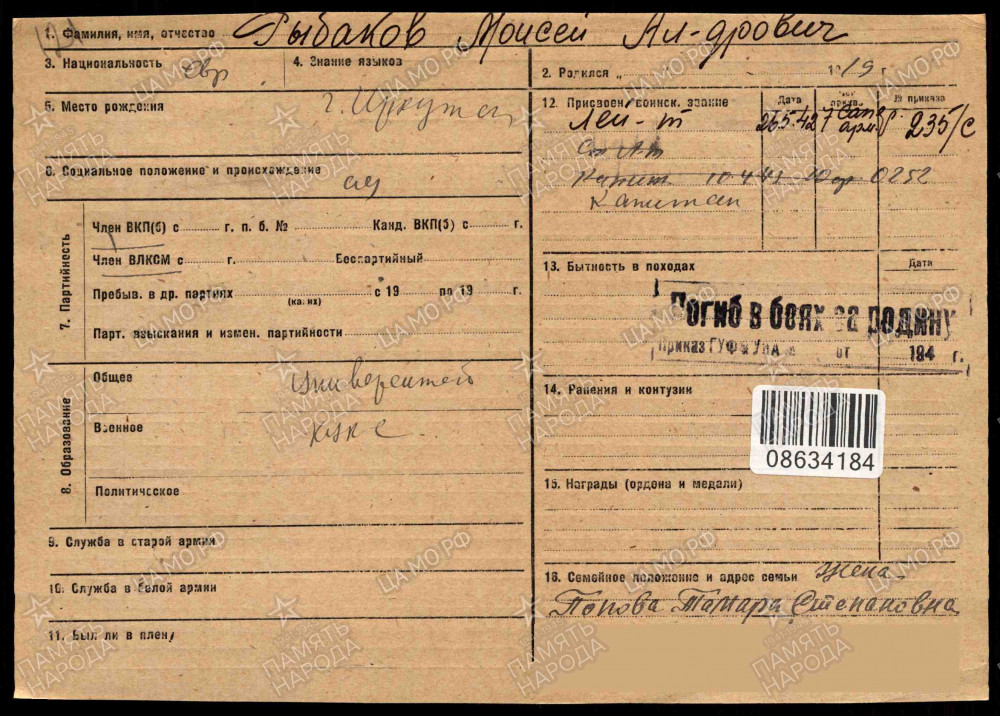 1. Фамилия, имя, отчество Рыбаков Моисей Ал-дрович
3. Национальность евр
4. Знание языков
5. Место рождения г. Иркутск
6. Социальное положение и происхождение
7. Партийность
Член ВКП(б) с г. п. б. № Канд. ВКП(б) с г.
Член ВЛКСМ с г. Беспартийный
Пребыв. в др. партиях с 19 по 19 г.
(каких)
Парт. взыскания и измен. партийности
8. Образование
Общее университет
Военное
Политическое
9. Служба в старой армии
10. Служба в белой армии
11. Был ли в плену
2. Родился „ 1919 г.
12. Присвоен воинск. звание Дата № приказа
Лей-т 26.5.42 7 арм. 235/с
Капит 0252
Капитан
13. Бытность в походах Дата
Погиб в боях за родину
Приказ ГУФ от 194 г.
14. Ранения и контузии
08634184
15. Награды (ордена и медали)
16. Семейное положение и адрес семьи жена
Попова Тамара Степановна
ПАМЯТЬ НАРОДА
ЦАМО.РФ